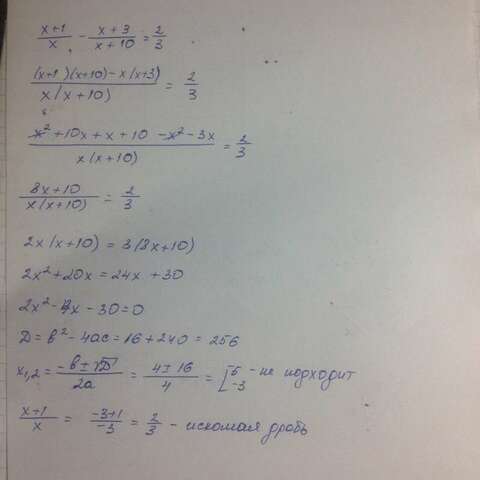 (x+1)/x - (x+3)/(x+10) = 2/3
((x+1)(x+10) - x(x+3))/(x(x+10)) = 2/3
(x² + 10x + x + 10 - x² - 3x)/(x(x+10)) = 2/3
(8x+10)/(x(x+10)) = 2/3
2x(x+10) = 3(8x+10)
2x² + 20x = 24x + 30
2x² - 4x - 30 = 0
D = b² - 4ac = 16 + 240 = 256
x₁,₂ = (-b ± √D)/(2a) = (4 ± 16)/4 = [5 - не подходит
-3
(x+1)/x = (-3+1)/(-3) = 2/3 - искомая дробь